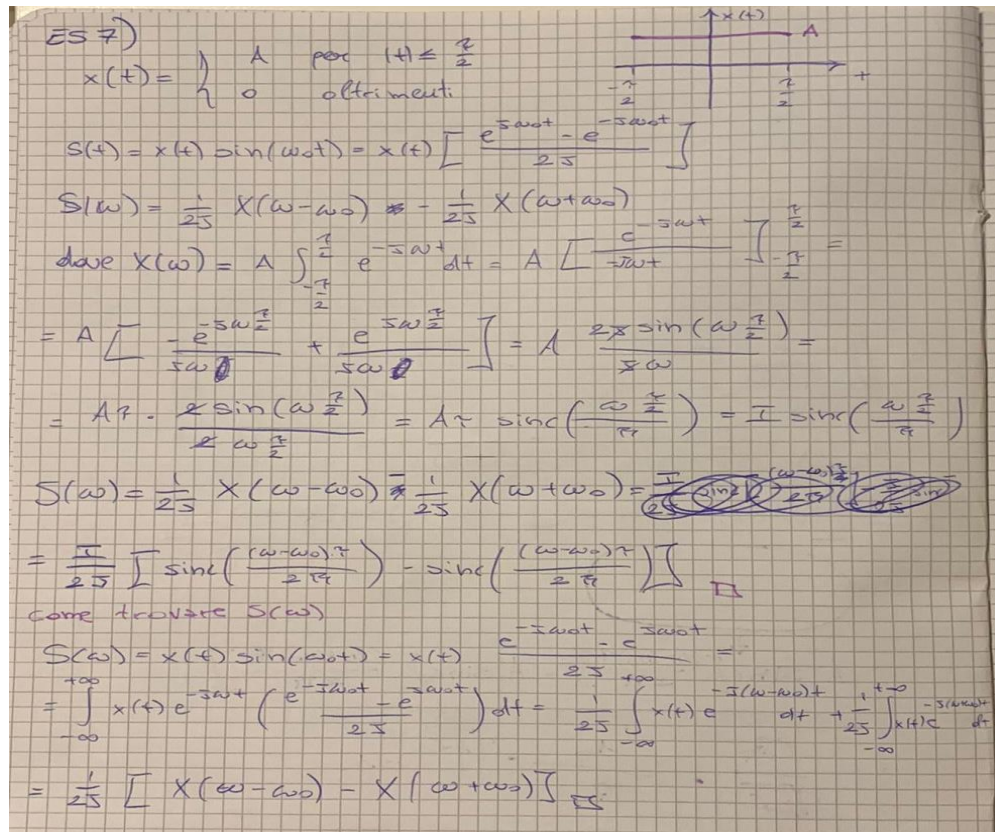 ES 7)
x(t) = { A per |t| ≤ τ/2
0 oltrimenti
x(t)
A
-τ/2 τ/2 t
S(t) = x(t) sin(ω0t) = x(t) [ (e^{jω0t} - e^{-jω0t}) / 2j ]
S(ω) = 1/2j X(ω-ω0) - 1/2j X(ω+ω0)
dove X(ω) = A ∫_{-τ/2}^{τ/2} e^{-jωt} dt = A [ e^{-jωt} / -jωt ]_{-τ/2}^{τ/2} =
= A [ -e^{-jωτ/2} / jω + e^{jωτ/2} / jω ] = A 2j sin(ω τ/2) / jω =
= Aτ · 2 sin(ω τ/2) / 2 ω τ/2 = Aτ sinc( ω τ/2 / π ) = I sinc( ω τ/2 / π )
S(ω) = 1/2j X(ω-ω0) - 1/2j X(ω+ω0) =
= I/2j [ sinc( (ω-ω0)τ / 2π ) - sinc( (ω-ω0)τ / 2π ) ]
come trovare S(ω)
S(ω) = x(t) sin(ω0t) = x(t) (e^{-jω0t} - e^{jω0t}) / 2j =
= ∫_{-∞}^{+∞} x(t) e^{-jωt} ( (e^{-jω0t} - e^{jω0t}) / 2j ) dt = 1/2j ∫_{-∞}^{+∞} x(t) e^{-j(ω-ω0)t} dt + 1/2j ∫_{-∞}^{+∞} x(t) e^{-j(ω+ω0)t} dt
= 1/2j [ X(ω-ω0) - X(ω+ω0) ]